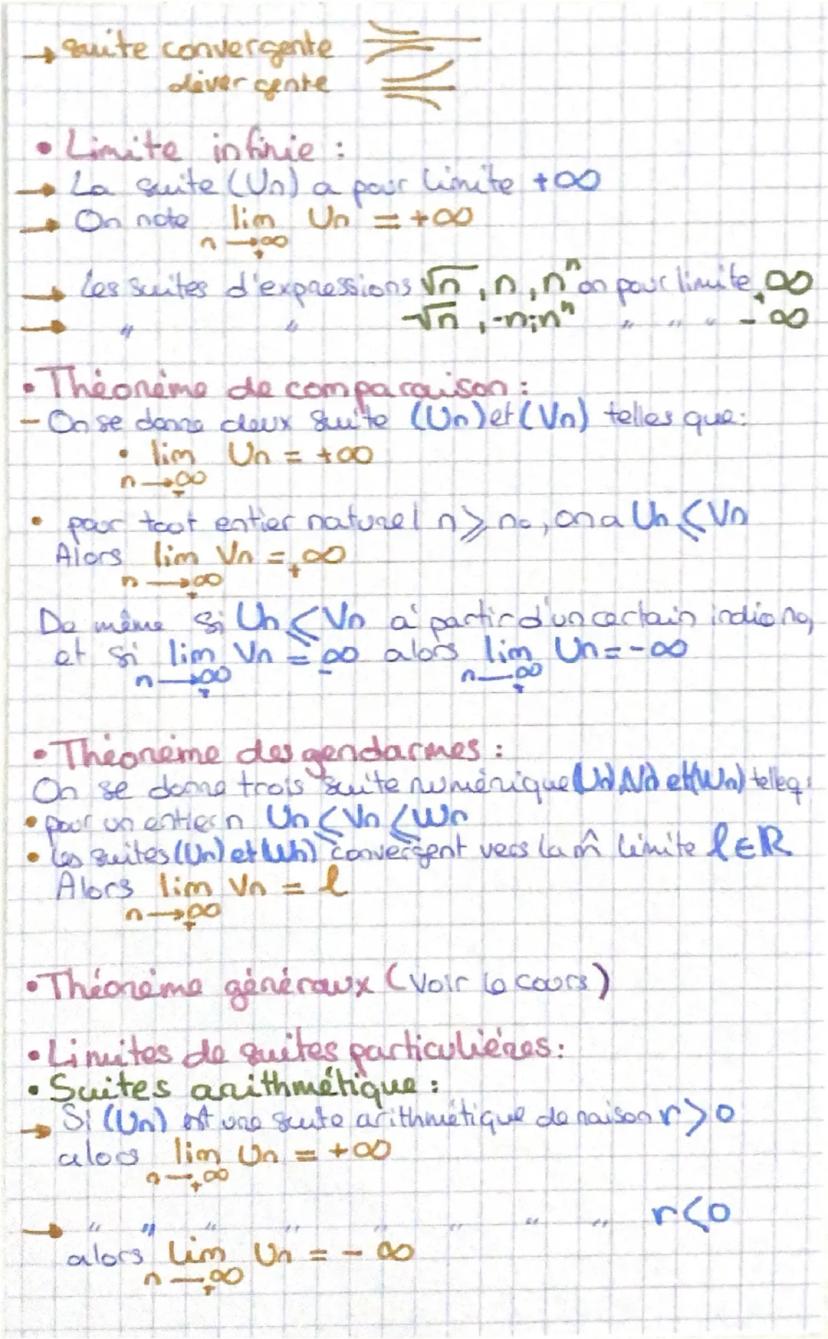 → suite convergente
divergente
• Limite infinie :
→ La suite (Un) a pour limite +∞
→ On note lim Un = +∞
n→+∞
→ Les suites d'expressions √n, n, nⁿ on pour limite +∞
→ " " -√n, -n, nⁿ " " " -∞
• Théorème de comparaison :
- On se donne deux suite (Un) et (Vn) telles que:
• lim Un = +∞
n→+∞
• pour tout entier naturel n ⩾ n₀, on a Un ⩽ Vn
Alors lim Vn = +∞
n→+∞
De même si Un ⩽ Vn a partir d'un certain indice n₀
et si lim Vn = -∞ alors lim Un = -∞
n→+∞ n→+∞
• Théorème des gendarmes :
On se donne trois suite numérique (Un) (Vn) et (Wn) telle q
• pour un entier n Un ⩽ Vn ⩽ Wn
• les suites (Un) et (Wn) convergent vers la m̂ limite ℓ ∈ ℝ
Alors lim Vn = ℓ
n→+∞
• Théorème généraux (voir le cours)
• Limites de suites particulières :
• Suites arithmétique :
→ Si (Un) est une suite arithmétique de raison r > 0
alors lim Un = +∞
n→+∞
→ " " " " " " " " r < 0
alors lim Un = -∞
n→+∞